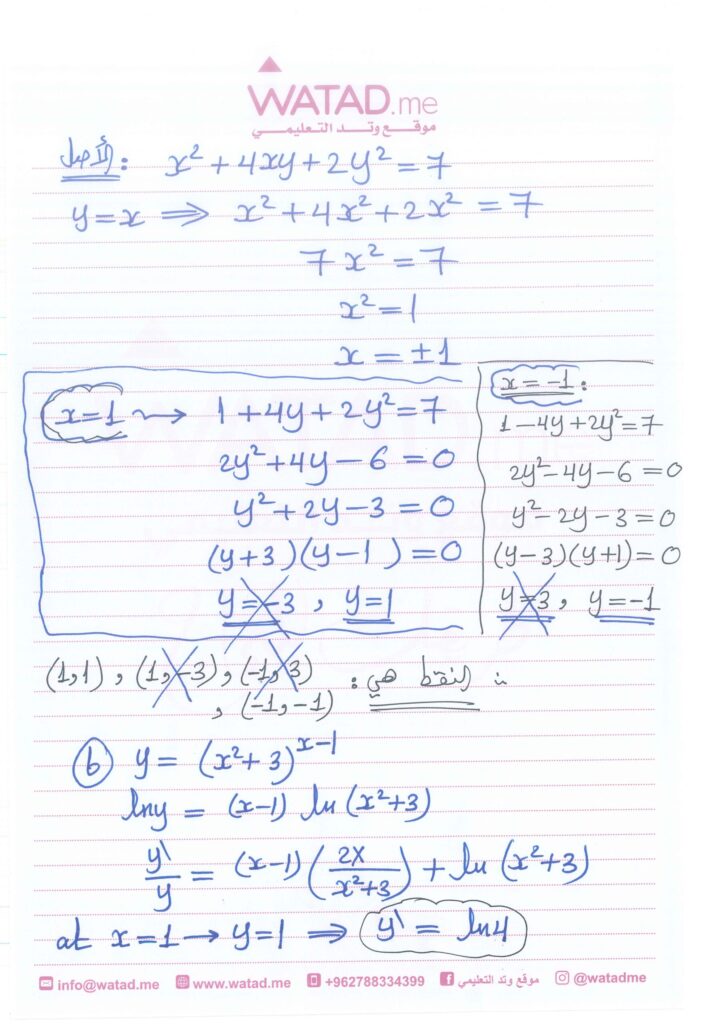 WATAD.me
موقع وتد التعليمي
الأصل: x² + 4xy + 2y² = 7
y = x ⟹ x² + 4x² + 2x² = 7
7x² = 7
x² = 1
x = ±1
x = 1 → 1 + 4y + 2y² = 7
2y² + 4y − 6 = 0
y² + 2y − 3 = 0
(y + 3)(y − 1) = 0
y = −3 , y = 1
x = −1 :
1 − 4y + 2y² = 7
2y² − 4y − 6 = 0
y² − 2y − 3 = 0
(y − 3)(y + 1) = 0
y = 3 , y = −1
∴ النقط هي : (1,1) , (1,−3) , (−1,3)
, (−1,−1)
b y = (x² + 3)^(x−1)
ln y = (x−1) ln (x²+3)
y\/y = (x−1) (2x/(x²+3)) + ln (x²+3)
at x = 1 → y = 1 ⟹ y\ = ln 4
info@watad.me www.watad.me +962788334399 موقع وتد التعليمي @watadme